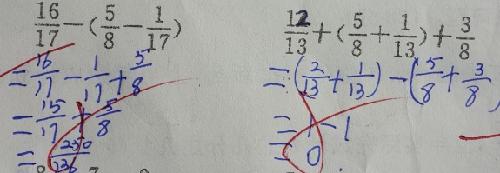 16/17 − (5/8 − 1/17)
= 16/17 − 1/17 + 5/8
= 15/17 + 5/8
12/13 + (5/8 + 1/13) + 3/8
= (2/13 + 1/13) − (5/8 + 3/8)
= 1 − 1
= 0